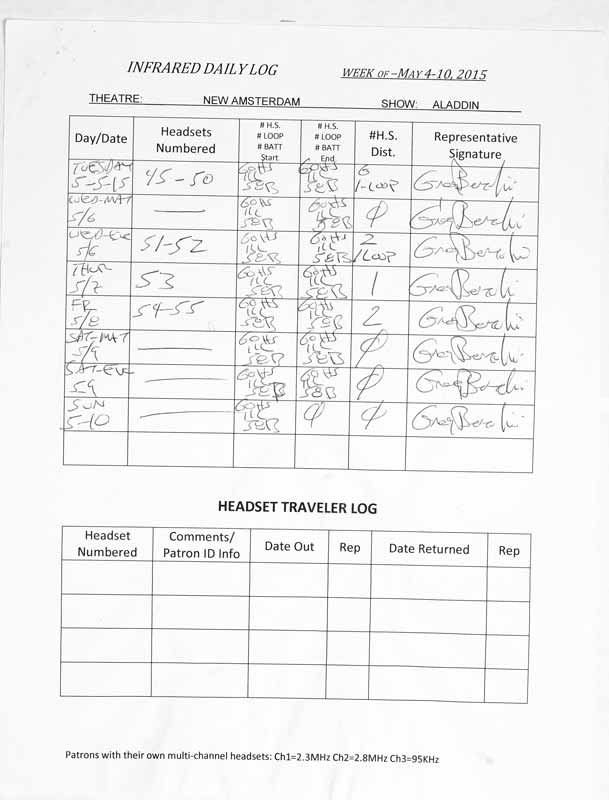 INFRARED DAILY LOG WEEK OF –MAY 4-10, 2015
THEATRE: NEW AMSTERDAM SHOW: ALADDIN
Day/Date Headsets Numbered # H.S. # LOOP # BATT Start # H.S. # LOOP # BATT End #H.S. Dist. Representative Signature
TUESDAY 5-5-15 45-50 60HS 1LL 5EB 60HS 1LL 5EB 6 1-LOOP
WED-MAT 5/6 — 60HS 1LL 5EB 60HS 1LL 5EB ϕ
WED-EVE 5/6 51-52 60HS 1LL 5EB 60HS 1LL 5EB 2 1/LOOP
THUR 5/7 53 60HS 1LL 5EB 60HS 1LL 5EB 1
FR 5/8 54-55 60HS 1LL 5EB 60HS 1LL 5EB 2
SAT-MAT 5/9 — 60HS 1LL 5EB 60HS 1LL 5EB ϕ
SAT-EVE 5/9 — 60HS 1LL 5EB 60HS 1LL 5EB ϕ
SUN 5-10 — 60HS 1LL 5EB ϕ ϕ
HEADSET TRAVELER LOG
Headset Numbered Comments/ Patron ID Info Date Out Rep Date Returned Rep
Patrons with their own multi-channel headsets: Ch1=2.3MHz Ch2=2.8MHz Ch3=95KHz